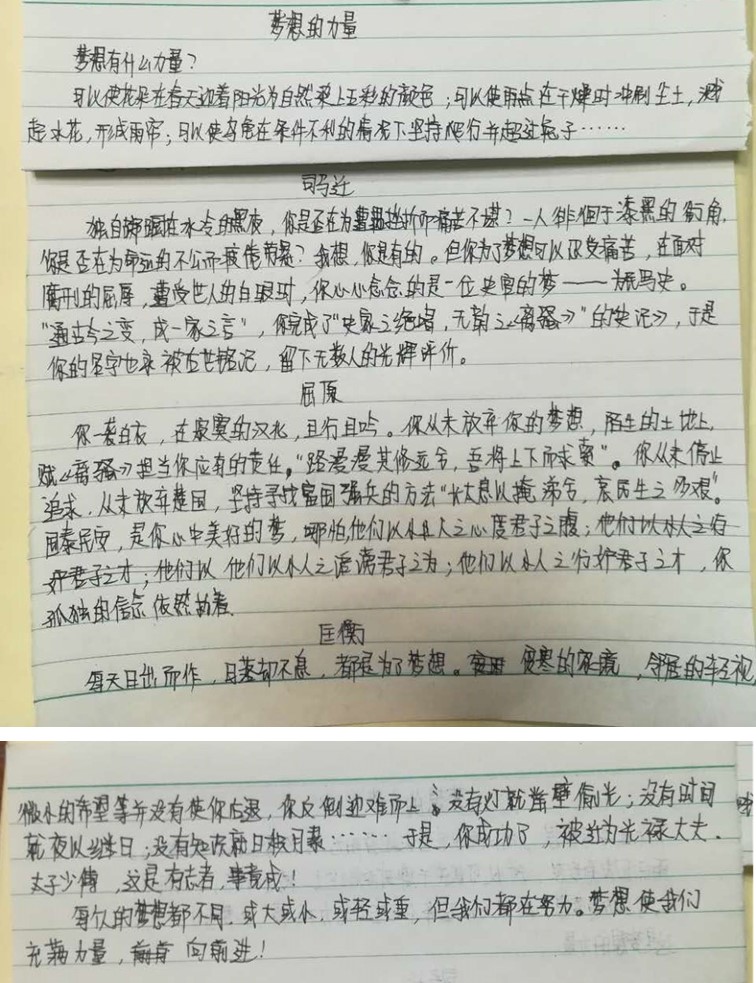 梦想的力量
梦想有什么力量?
可以使花朵在春天迎着阳光为自然染上五彩的颜色;可以使雨点在干燥时冲刷尘土,溅
起水花,形成雨帘;可以使乌龟在条件不利的情况下坚持爬行并超过兔子……
司马迁
独自蜷踞在冰冷的黑夜,你是否在为遭遇挫折而痛苦不堪?一人徘徊于漆黑的街角,
你是否在为命运的不公而疲倦?我想,你是有的。但你为了梦想可以承受痛苦,在面对
腐刑的屈辱,遭受世人的白眼时,你心心念念的是一位史官的梦——为瓶马史。
"通古今之变,成一家之言",你完成了"史家之绝唱,无韵之《离骚》"的史记》,于是
你的名字也永被在世铭记,留下无数人的光辉评价。
屈原
你一袭白衣,在寂寞的汉北,且行且吟。你从未放弃你的梦想,陌生的土地上,
赋《离骚》担当你应有的责任。"路漫漫其修远兮,吾将上下而求索"。你从未停止
追求,从未放弃楚国,坚持寻找富国强兵的方法"长太息以掩涕兮,哀民生之多艰"。
国泰民安,是你心中美好的梦,哪怕,他们以小人之心度君子之腹;他们以小人之行
妒君子之才;他们以 他们以小人之 君子之为;他们以小人之行妒君子之才,你
孤独的信念依然执着.
匡衡
每天日出而作,日落却不息,都是为了梦想。 贫寒的家境,邻居的轻视,
微小的希望等并没有使你后退,你反倒迎难而上:没有灯就凿壁偷光;没有时间
就夜以继日;没有知识就日积月累……于是,你成功了,被封为光禄大夫.
太子少傅,这是有志者,事竟成!
每个人的梦想都不同,或大或小,或轻或重,但我们都在努力。梦想使我们
充满力量, 向前进!